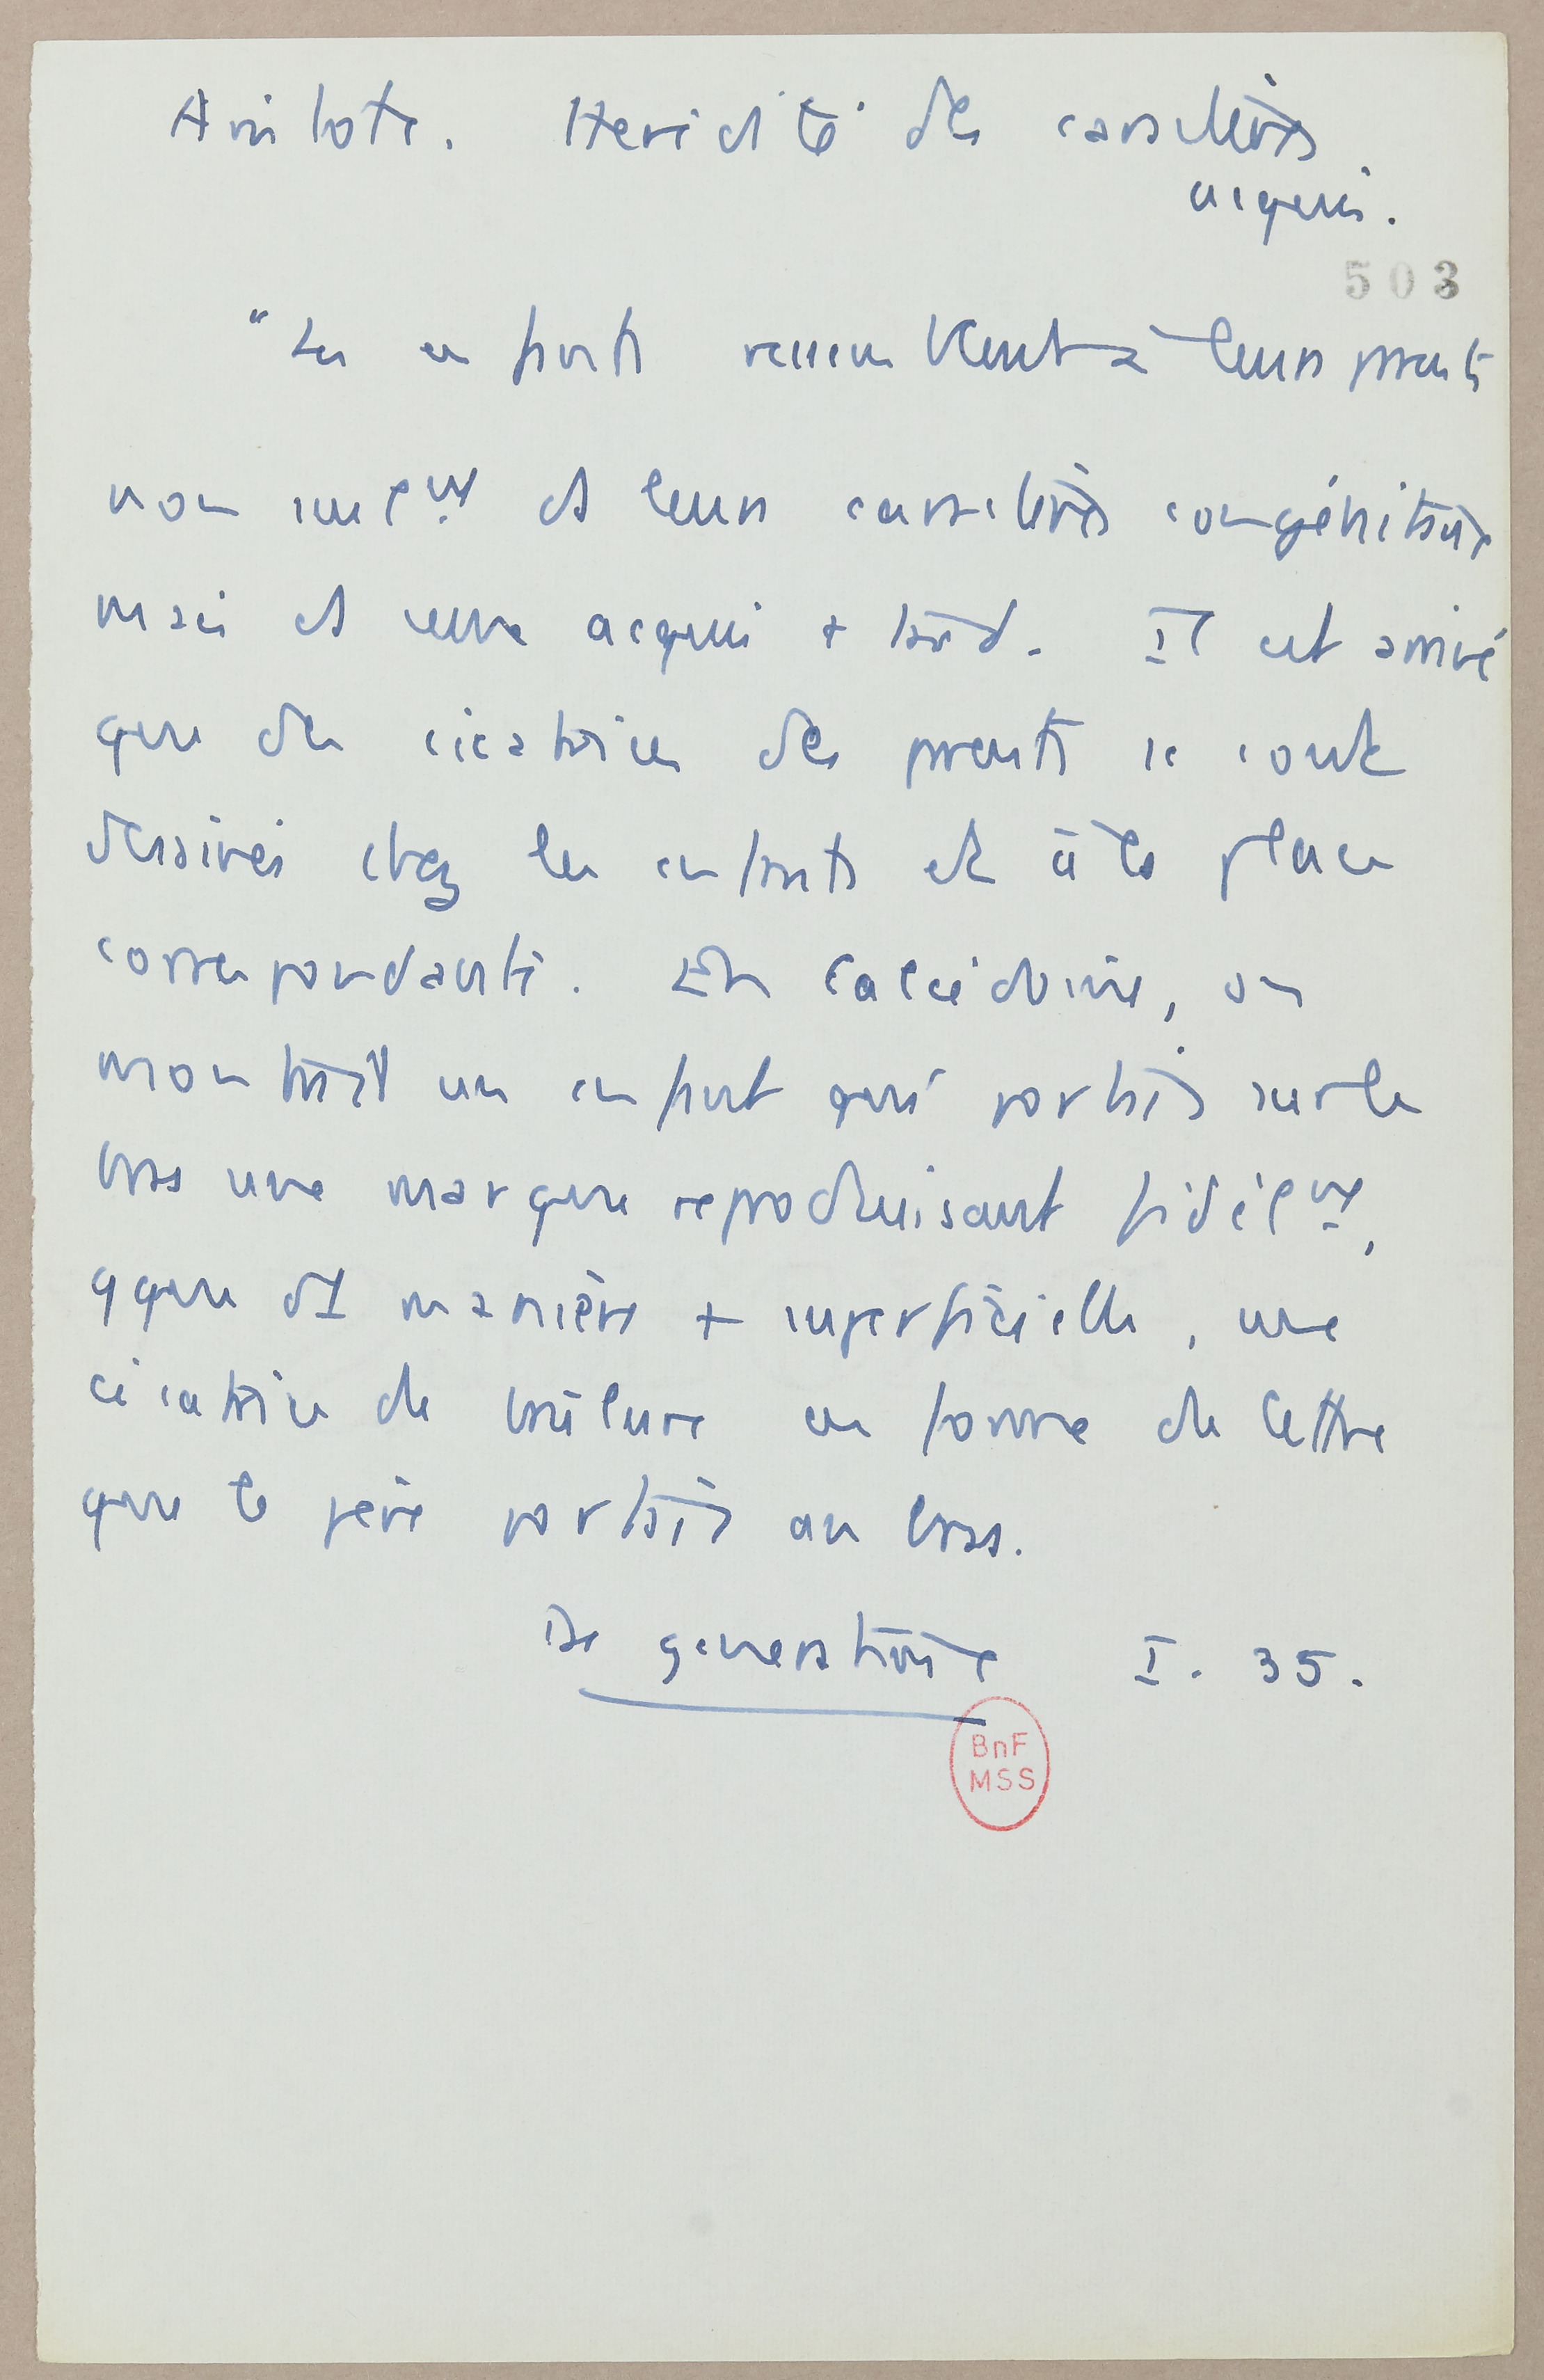 Aristote. Hérédité des caractères
acquis.
503
"Les enfants ressemblent à leurs parents
non seulemt ds leurs caractères congénitaux
mais ds ceux acquis + tard. Il est arrivé
que des cicatrices des parents se sont
dessinées chez les enfants et à la place
correspondante. En Calcédoine, on
montrait un enfant qui portait sur le
bras une marque reproduisant fidèlemt,
qque d'1 manière + superficielle, une
cicatrice de brûlure en forme de lettre
que le père portait au bras.
De generatione I. 35.
BnF
MSS